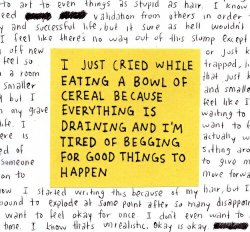 to art to even things as stupid as hair. I know
need validation from others in order
and successful life, but it sure as hell wouldn't
I feel like there's no way out of this slump except
off new
feel so
a room
smaller
but I
my grave
life. I
is
of
Someone
to
I JUST CRIED WHILE
EATING A BOWL OF
CEREAL BECAUSE
EVERYTHING IS
DRAINING AND I'M
TIRED OF BEGGING
FOR GOOD THINGS TO
HAPPEN
or just
trapped,
that just
and smaller
feel like I
waiting to
want to
actually
sitting
to give
move
I started writing this because of my hair, but I
bound to explode at some point after so many
want to feel okay for once I don't even want to
time. I know that's unrealistic. Okay is okay.